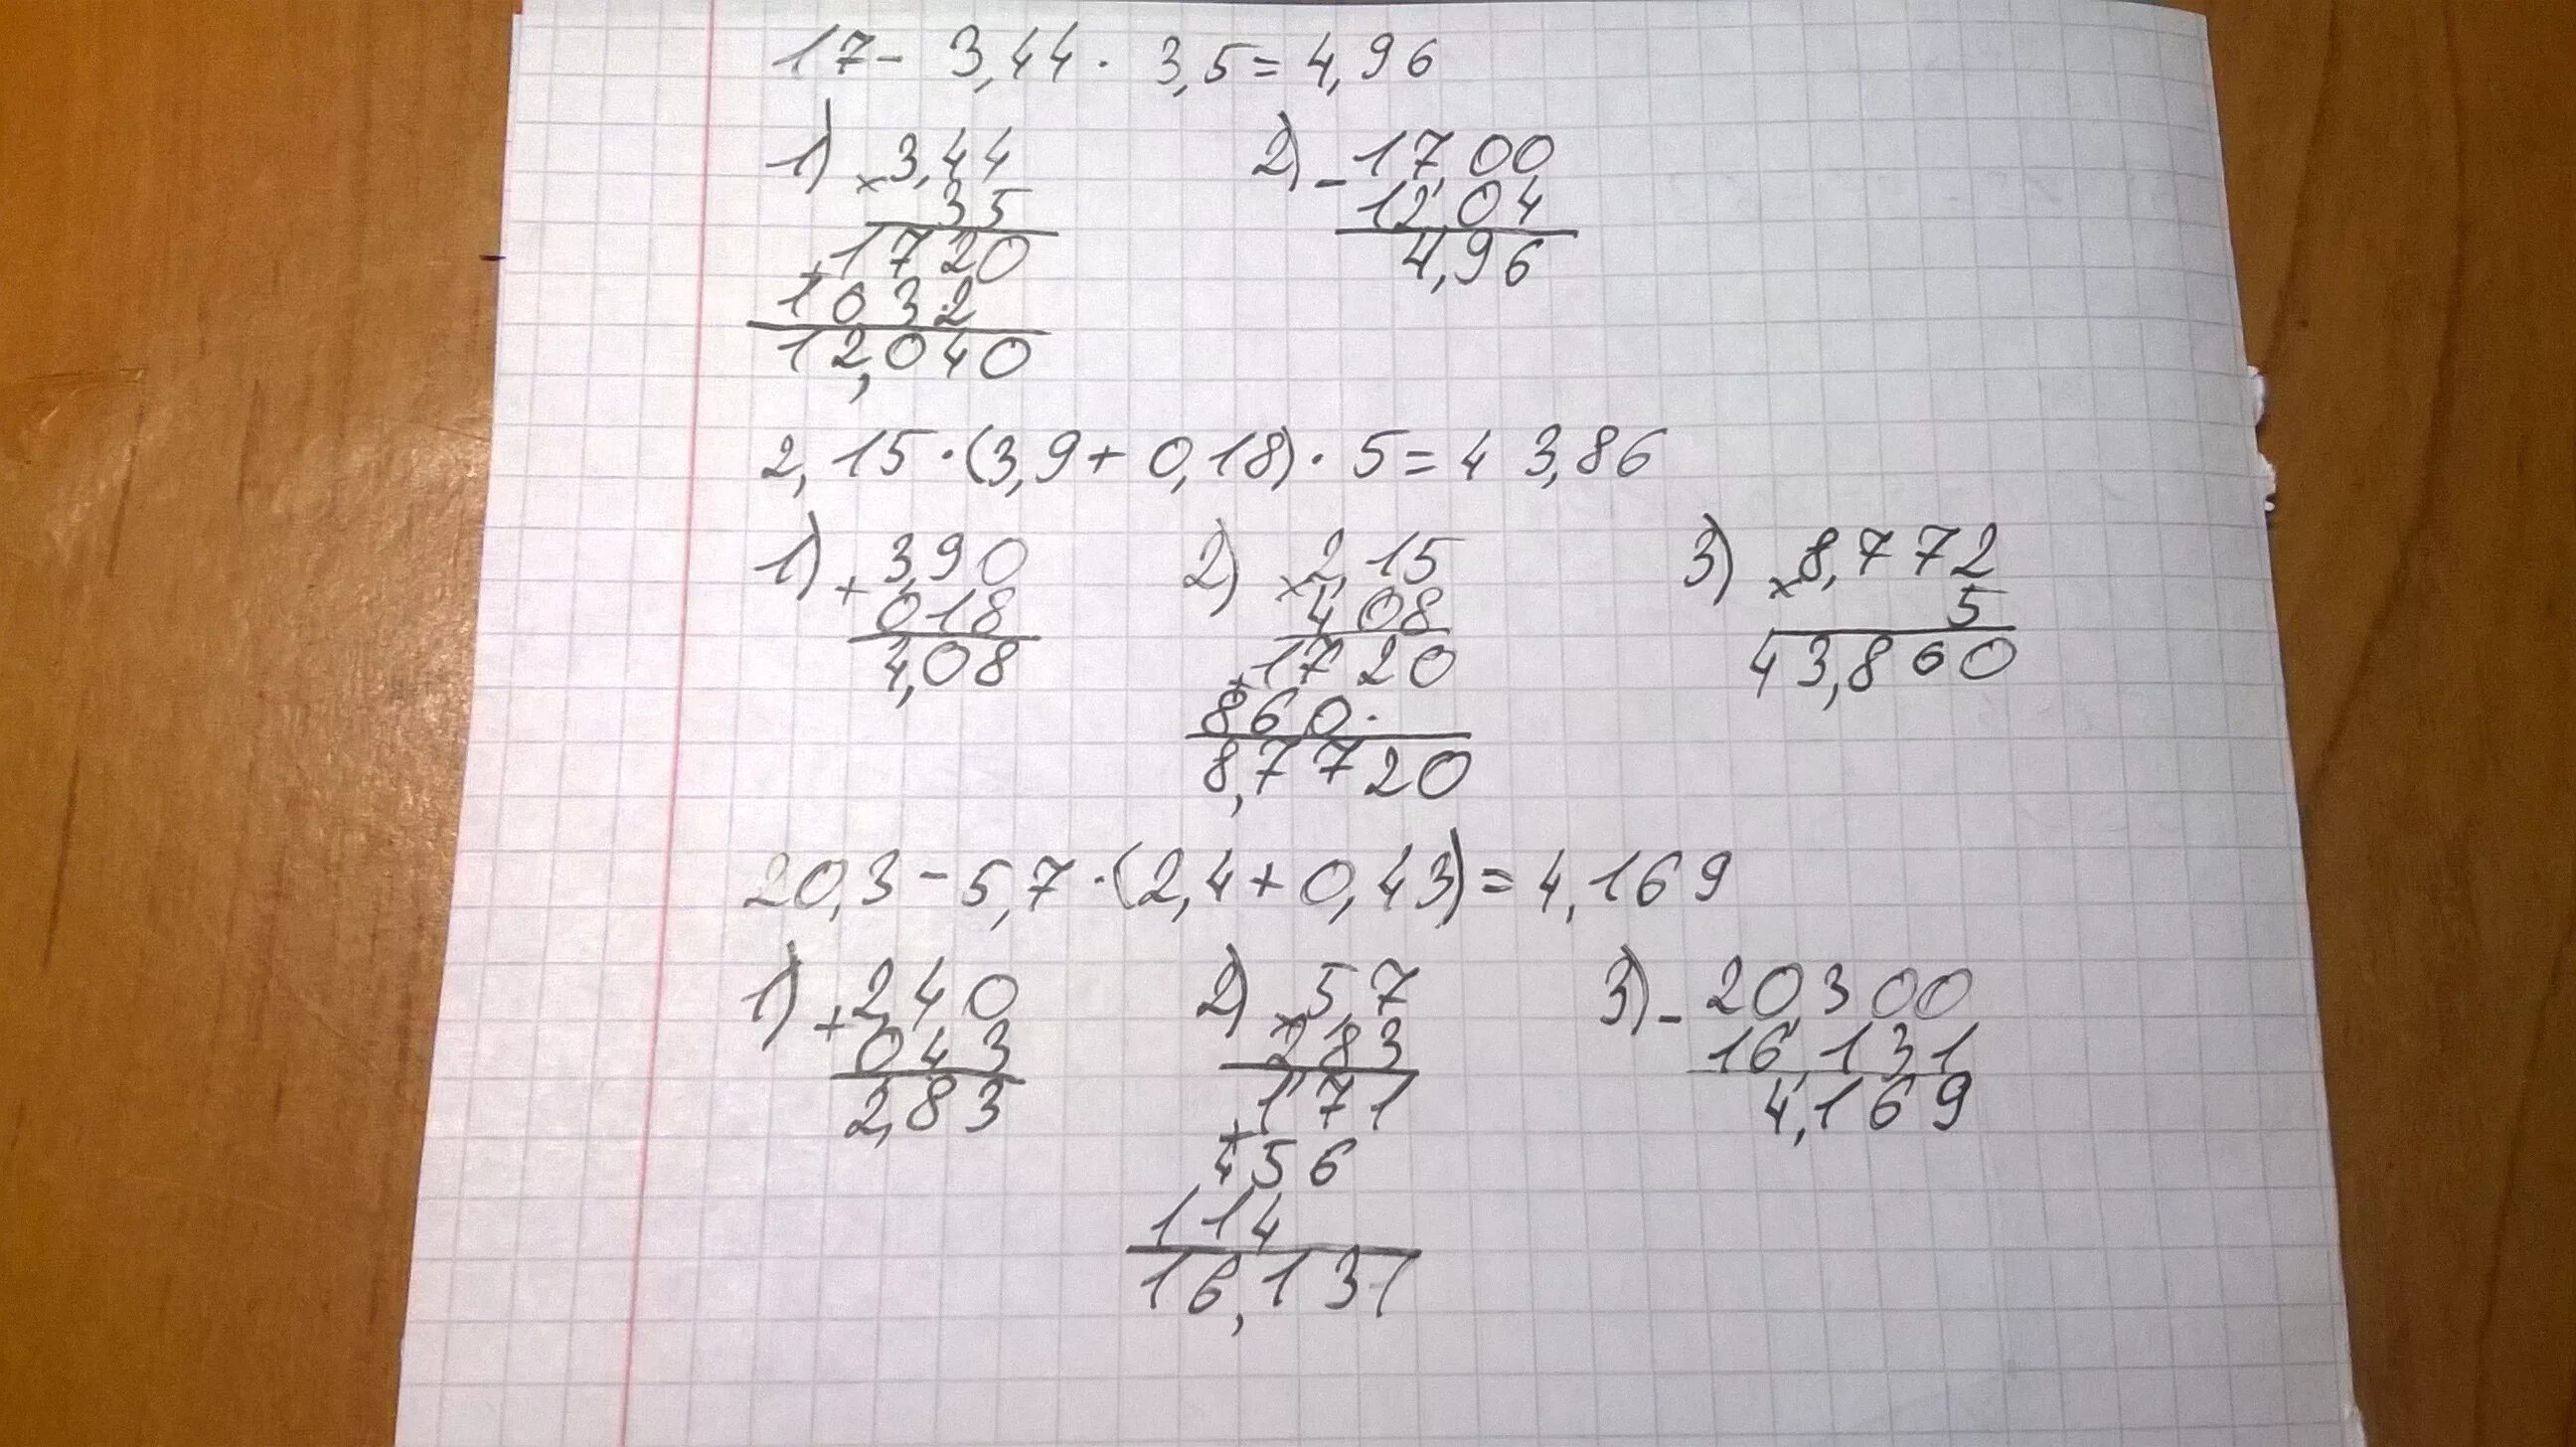 17 - 3,44 · 3,5 = 4,96
1) × 3,44 2) - 17,00
35 12,04
+ 1720 4,96
1032
12,040
2,15 · (3,9 + 0,18) · 5 = 43,86
1) + 3,90 2) × 2,15 3) × 8,772
018 4,08 5
4,08 + 1720 43,860
860·
8,7720
20,3 - 5,7 · (2,4 + 0,43) = 4,169
1) + 2,40 2) × 5,7 3) - 20,300
0,43 2,83 16,131
2,83 + 171 4,169
456
114
16,131